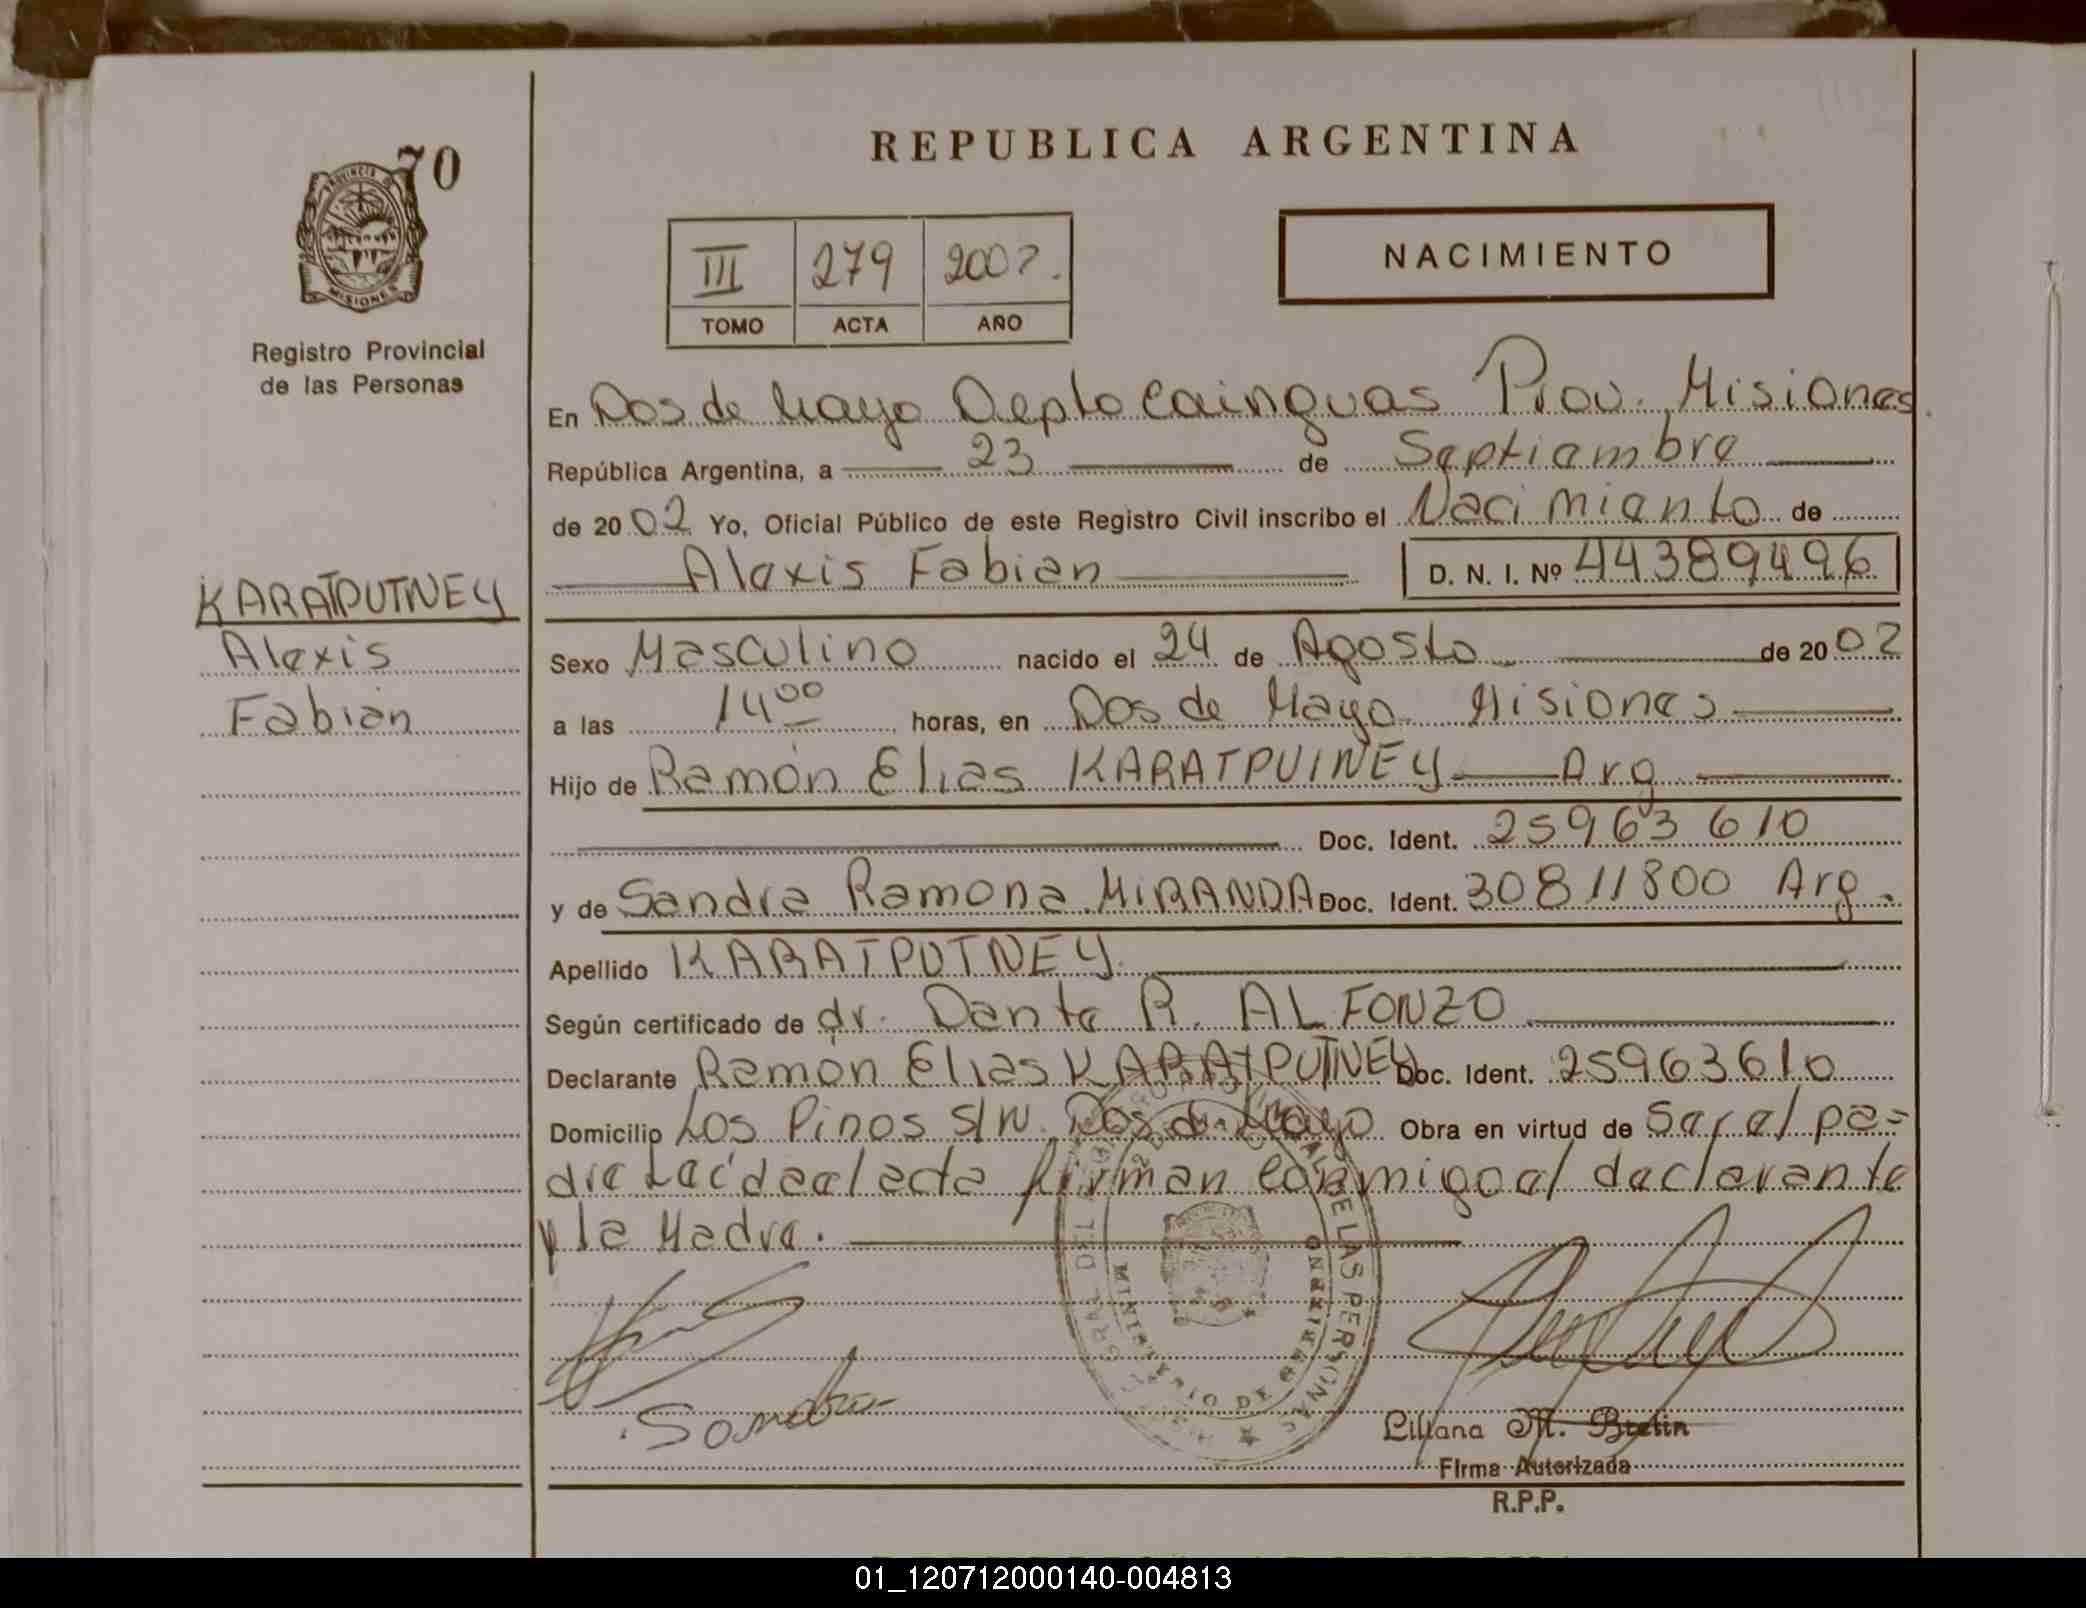 70
PROVINCIA DE
MISIONES
Registro Provincial
de las Personas
KARATPUTNEY
Alexis
Fabián
REPUBLICA ARGENTINA
III 279 2002.
TOMO ACTA AÑO
NACIMIENTO
En Dos de Mayo Depto Cainguas Prov. Misiones
República Argentina, a 23 de Septiembre
de 20 02 Yo, Oficial Público de este Registro Civil inscribo el Nacimiento de
Alexis Fabián D. N. I. Nº 44389496
Sexo Masculino nacido el 24 de Agosto de 20 02
a las 14 00 horas, en Dos de Mayo Misiones
Hijo de Ramón Elias KARATPUTNEY Arg
Doc. Ident. 25963610
y de Sandra Ramona MIRANDA Doc. Ident. 30811800 Arg.
Apellido KARATPUTNEY.
Según certificado de dr. Dante R. ALFONZO
Declarante Ramón Elias KARATPUTNEY Doc. Ident. 25963610
Domicilio Los Pinos S/N. Dos de Mayo Obra en virtud de Ser el pa=
dre Leída el acta firman conmigo el declarante
y la Madre.
DE LAS PERSONAS
MINISTERIO DE GOBIERNO
Sandra
Liliana M. Bretin
Firma Autorizada
R.P.P.
01_120712000140-004813